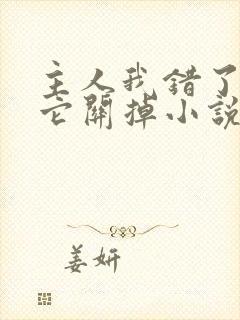 主人我错了
它關掉小說
姜妍